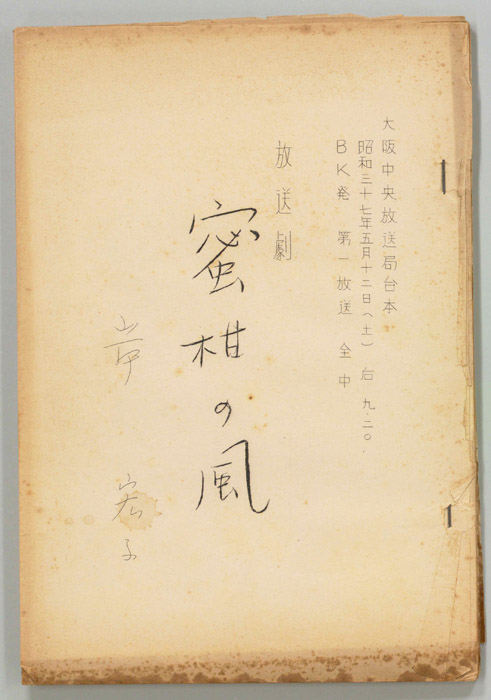 大阪中央放送局台本
昭和三十七年五月十二日(土) 后 九.二〇.
BK発 第一放送 全中
放送劇
蜜柑の風
岸 宏子